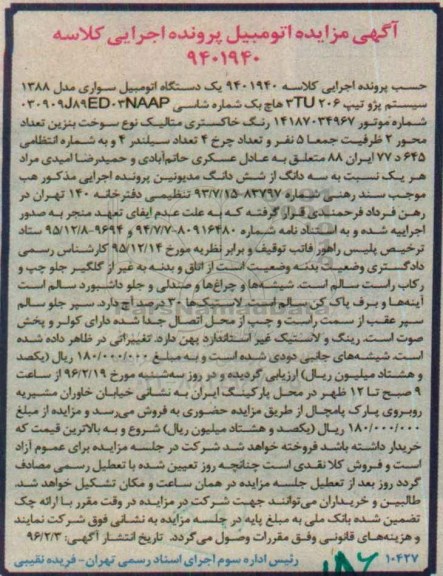 آگهی مزایده اتومبیل پرونده اجرایی کلاسه
۹۴۰۱۹۴۰
حسب پرونده اجرایی کلاسه ۹۴۰۱۹۴۰ یک دستگاه اتومبیل سواری مدل ۱۳۸۸
سیستم پژو تیپ ۲۰۶ ۳TU هاچ بک شماره شاسی ۰۳۰۹۰۹J۸۹ED۰۳NAAP
شماره موتور ۱۴۱۸۷۰۳۴۹۶۷ رنگ خاکستری متالیک نوع سوخت بنزین تعداد
محور ۲ ظرفیت جمعا ۵ نفر و تعداد چرخ ۴ تعداد سیلندر ۴ و به شماره انتظامی
۶۴۵ د ۷۷ ایران ۸۸ متعلق به عادل عسکری حاتم‌آبادی و حمیدرضا امیدی مراد
هر یک نسبت به سه دانگ از شش دانگ مدیونین پرونده اجرایی مذکور هب
موجب سند رهنی شماره ۸۳۷۹۷-۹۳/۷/۱۵ تنظیمی دفترخانه ۱۴۰ تهران در
رهن فرداد فرحمندی قرار گرفته که به علت عدم ایفای تعهد منجر به صدور
اجراییه شده و به استناد نامه شماره ۸۰۹۱۶۴۸۰-۹۴/۷/۷ و ۹۶۹۴-۹۵/۱۲/۸ ستاد
ترخیص پلیس راهور فاتب توقیف و برابر نظریه مورخ ۹۵/۱۲/۱۴ کارشناس رسمی
دادگستری وضعیت بدنه وضعیت است از اتاق و بدنه به غیر از گلگیر جلو چپ و
رکاب راست سالم است. شیشه‌ها و چراغ‌ها و صندلی و جلو داشبورد سالم است
آینه‌ها و برف پاک کن سالم است. لاستیک‌ها ۳۰ درصد آج دارد. سپر جلو سالم
سپر عقب از سمت راست و چپ از محل اتصال جدا شده دارای کولر و پخش
صوت است. رینگ و لاستیک غیر استاندارد پهن دارد. تغییراتی در ظاهر داده شده
است. شیشه‌های جانبی دودی شده است و به مبلغ ۱۸۰/۰۰۰/۰۰۰ ریال (یکصد
و هشتاد میلیون ریال) ارزیابی گردیده و در روز سه‌شنبه مورخ ۹۶/۲/۱۹ از ساعت
۹ صبح تا ۱۲ ظهر در محل پارکینگ ایران به نشانی خیابان خاوران مشیریه
روبروی پارک پامچال از طریق مزایده حضوری به فروش می‌رسد و مزایده از مبلغ
۱۸۰/۰۰۰/۰۰۰ ریال (یکصد و هشتاد میلیون ریال) شروع و به بالاترین قیمت که
خریدار داشته باشد فروخته خواهد شد شرکت در جلسه مزایده برای عموم آزاد
است و فروش کلا نقدی است چنانچه روز تعیین شده با تعطیل رسمی مصادف
گردد روز بعد از تعطیل جلسه مزایده در همان ساعت و مکان تشکیل خواهد شد.
طالبین و خریداران می‌توانند جهت شرکت در مزایده در وقت مقرر با ارائه چک
تضمین شده بانک ملی به مبلغ پایه در جلسه مزایده به نشانی فوق شرکت نمایند
و هزینه‌های قانونی وفق مقررات وصول می‌گردد. تاریخ انتشار آگهی: ۹۶/۲/۳
۱۰۴۲۷ رئیس اداره سوم اجرای اسناد رسمی تهران- فریده نقیبی